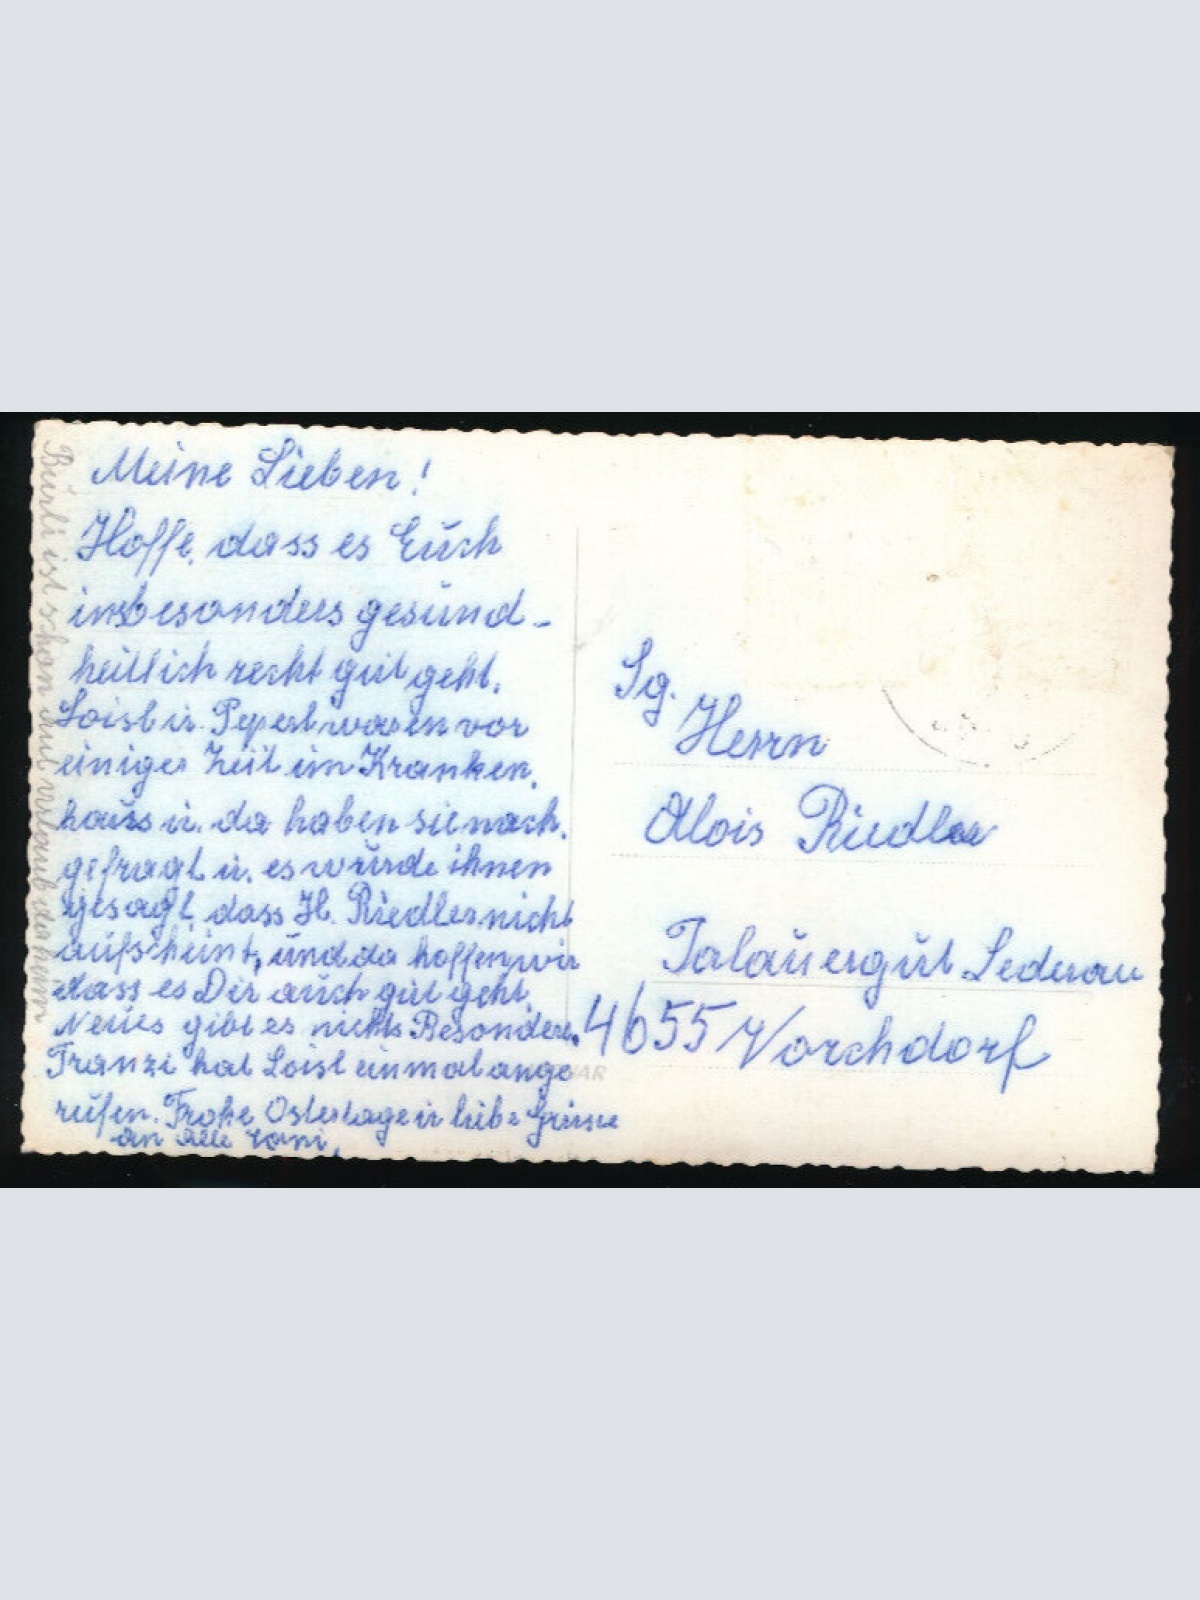 Meine Lieben!
Hoffe, dass es Euch
insbesonders gesund-
heitlich recht gut geht.
Loisl u. Peperl waren vor
einiger Zeit im Kranken-
haus u. da haben sie nach-
gefragt u. es wurde ihnen
gesagt, dass H. Riedler nicht
aufscheint, und da hoffen wir
dass es Dir auch gut geht.
Neues gibt es nichts Besonderes.
Franzi hat Loisl einmal ange
rufen. Frohe Ostertage u liebe Grüsse
an Alle
Burli ist schon auf Urlaub daheim
Sg.
Herrn
Alois Riedler
Talauergut Lederau
4655 Vorchdorf